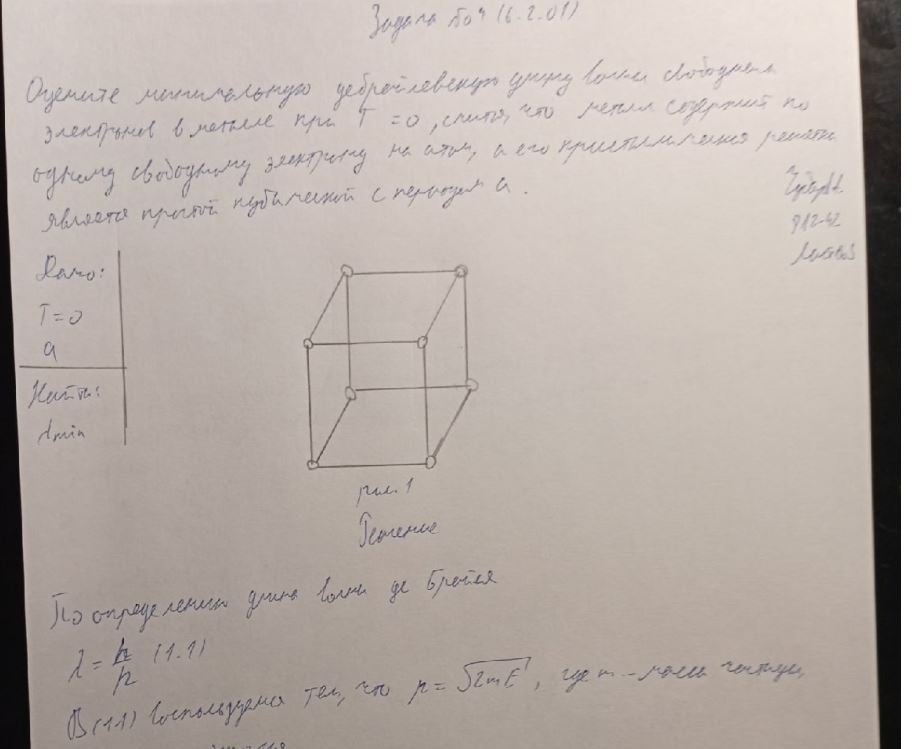 Задача №04 (6.2.01)
Оцените минимальную дебройлевскую длину волны свободных
электронов в металле при T = 0, считая, что металл содержит по
одному свободному электрону на атом, а его кристаллическая решетка
является простой кубической с периодом a.
912-42
Дано:
T=0
a
Найти:
λmin
рис. 1
Решение
По определению длина волны де Бройля
λ = h/p (1.1)
В (1.1) воспользуемся тем, что p = √2mE, где m - масса частицы,